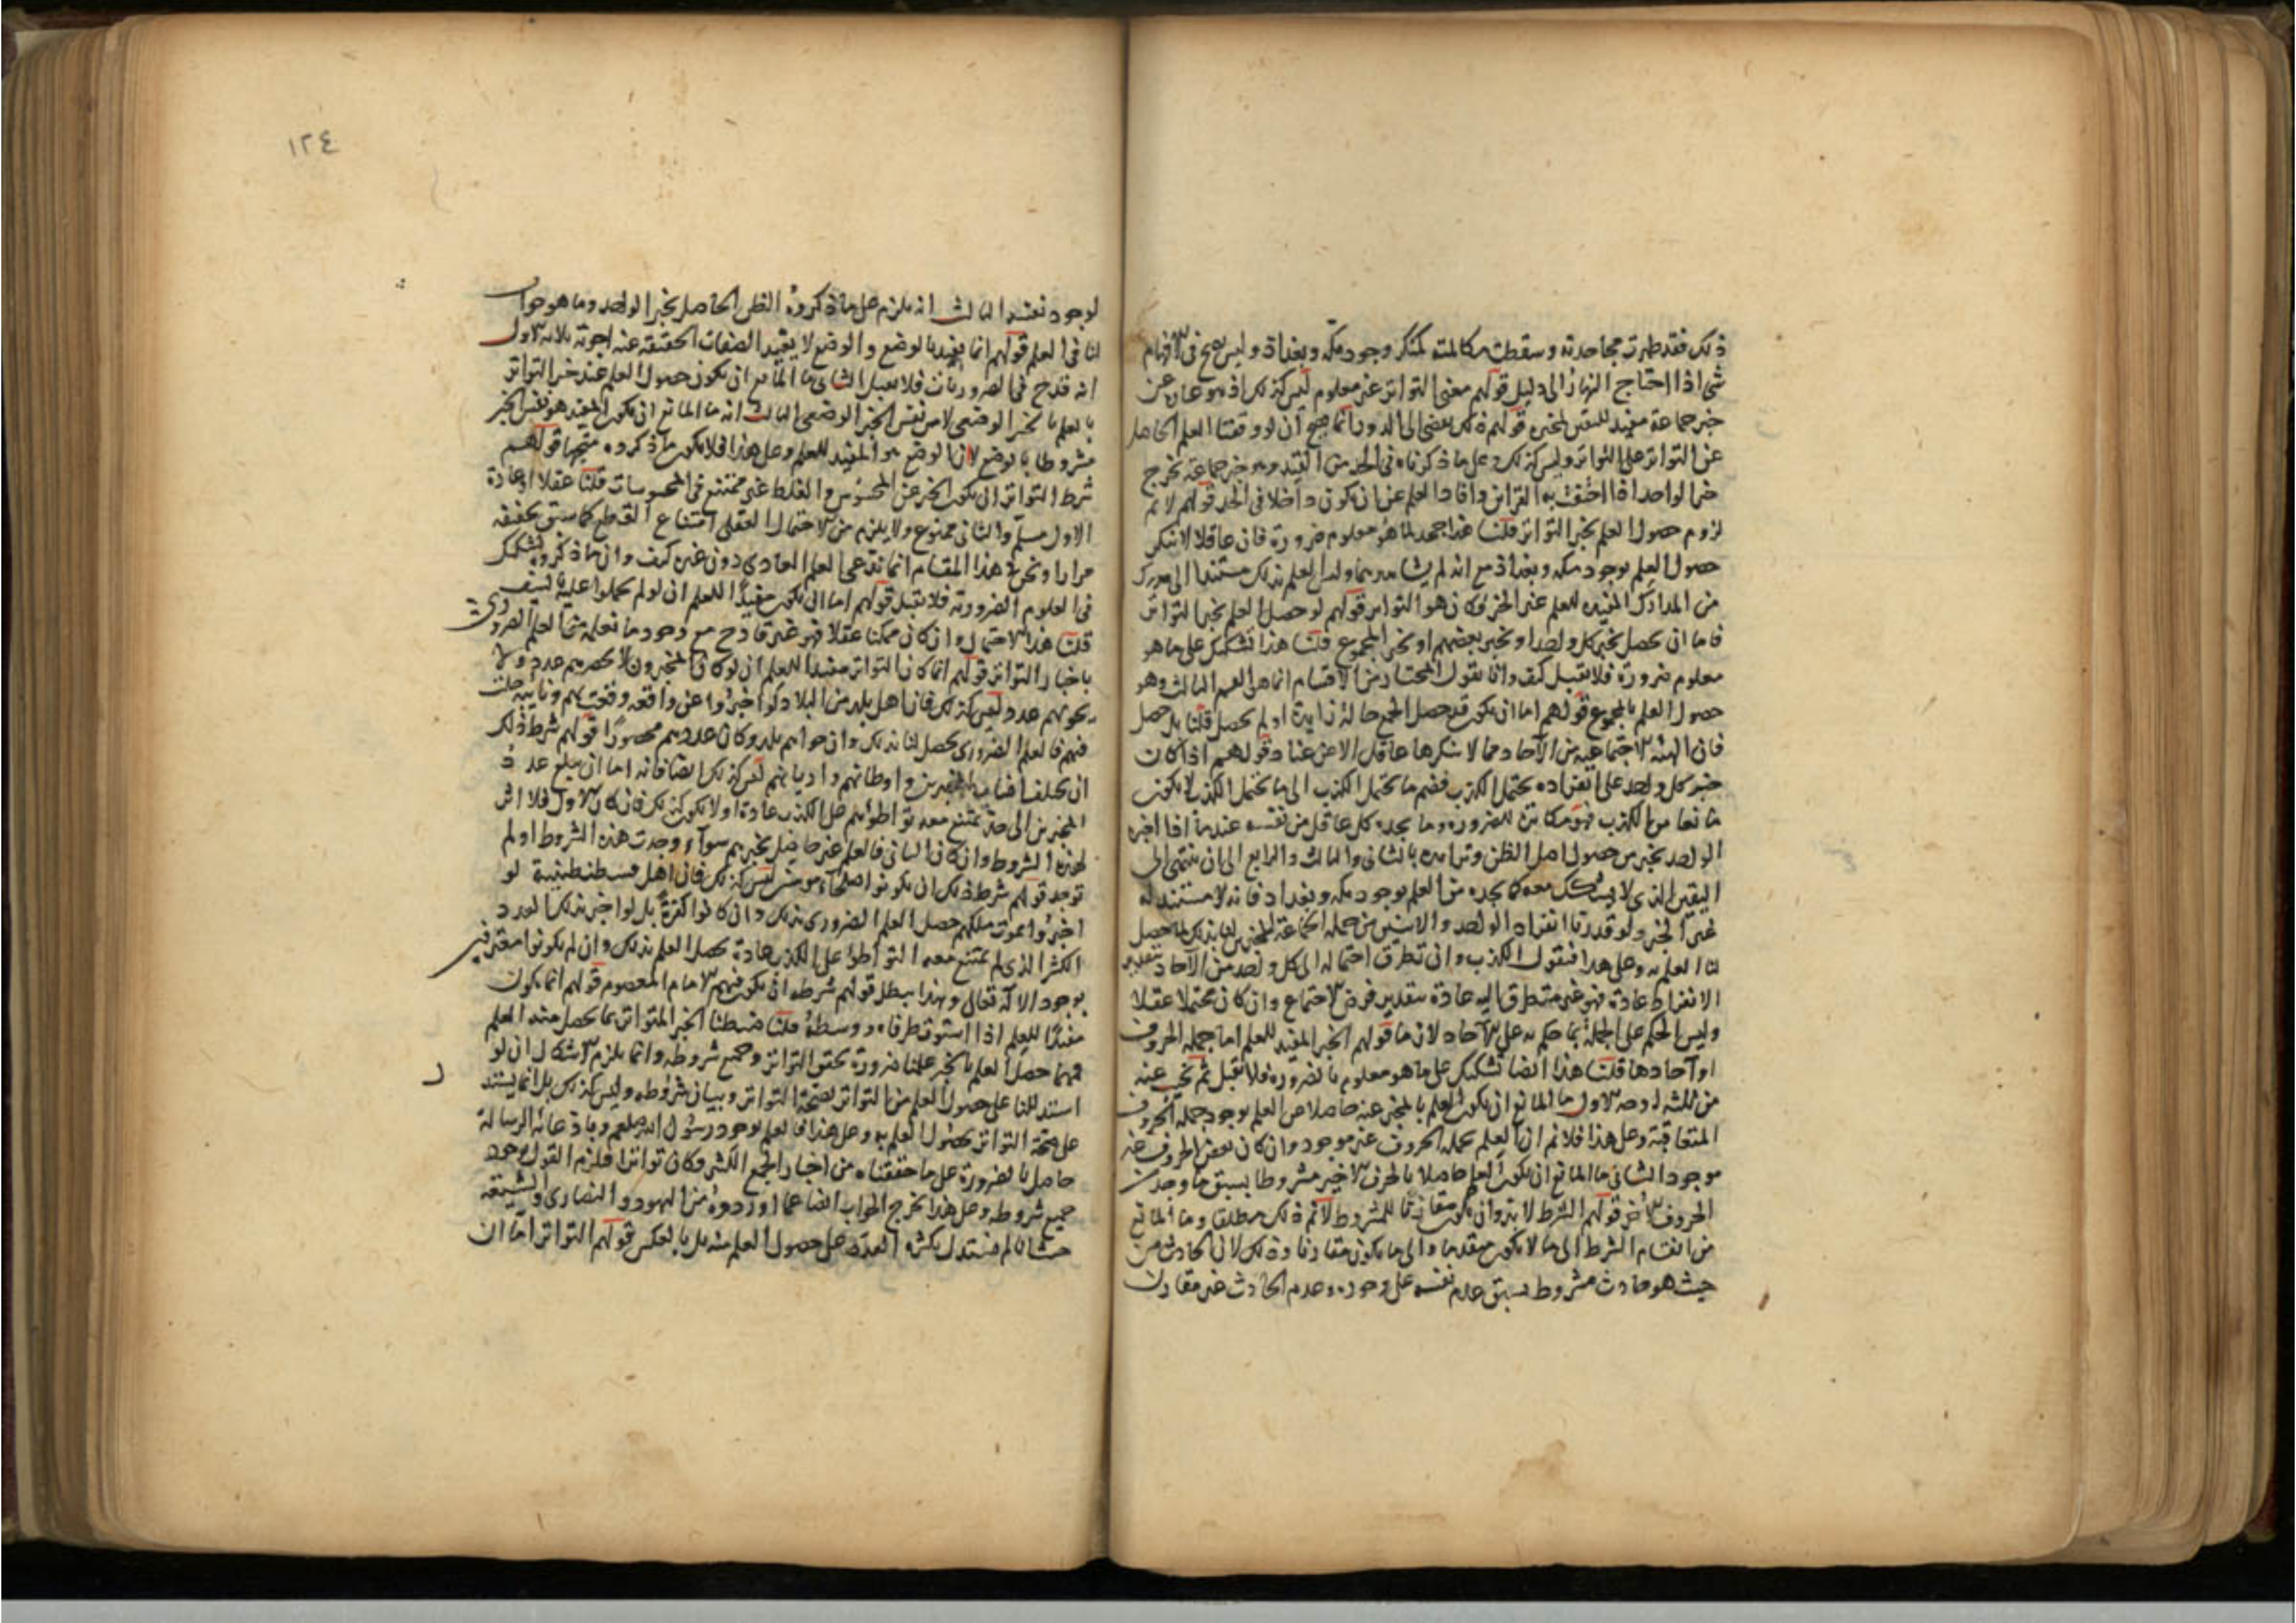 ذلك فقد ظهرت مجاحدته وسقطت مكالمته كمنكر وجود مكة وبغداد وليس يصح فى الافهام
شى اذا احتاج النهار الى دليل قولهم معنى التواتر غير معلوم ليس كذلك اذ هو عبارة عن
خبر جماعة مفيد لليقين بمخبره قولهم ذلك يفضى الى الدور انما يصح ان لو وقفنا العلم الحاصل
عن التواتر على التواتر وليس كذلك وعلى ما ذكرناه فى الحد من القيد وهو خبر جماعة يخرج
خبر الواحد اذا احتفت به القرائن وافاد العلم عن ان يكون داخلا فى الحد قولهم لا نم
لزوم حصول العلم بخبر التواتر قلنا هذا جحد لما هو معلوم ضرورة فان عاقلا لا ينكر
حصول العلم بوجود مكة وبغداد مع انه لم يشاهدهما وليس العلم بذلك مستندا الى مدرك
من المدارك المفيدة للعلم غير الخبر فكان هو التواتر قولهم لو حصل العلم بخبر التواتر
فاما ان يحصل بخبر كل واحد او بخبر بعضهم او بخبر المجموع قلنا هذا تشكيك على ما هو
معلوم ضرورة فلا يقبل كيف وانا نقول المختار من الاقسام انما هو القسم الثالث وهو
حصول العلم بالمجموع قولهم اما ان يكون قد حصل للجمع حالة زايدة او لم يحصل قلنا بل حصل
فان الهيئة الاجتماعية من الآحاد مما لا ينكرها عاقل الا عن عناد قولهم اذا كان
خبر كل واحد على انفراده يحتمل الكذب فضم ما يحتمل الكذب الى ما يحتمل الكذب لا يكون
مانعا من الكذب فهو مكابرة للضرورة وما يجده كل عاقل من نفسه عندما اذا اخبره
الواحد بخبر من حصول اصل الظن وتزايده بالثانى والثالث والرابع الى ان ينتهى الى
اليقين الذى لا يشك معه كما يجده من العلم بوجود مكة وبغداد فانه لا مستند له
غير الخبر ولو قدرنا انفراد الواحد والاثنين من جملة الجماعة المخبرين لنا بذلك لما حصل
لنا العلم به وعلى هذا فنقول الكذب وان تطرق احتماله الى كل واحد من الآحاد بتقدير
الانفراد عادة فهو غير متطرق اليه عادة بتقدير فرض الاجتماع وان كان محتملا عقلا
وليس الحكم على الجملة بما حكم به على الآحاد لازما قولهم الخبر المفيد للعلم اما جملة الحروف
او آحادها قلنا هذا ايضا تشكيك على ما هو معلوم بالضرورة فلا يقبل ثم نجيب عنه
من ثلثة اوجه الاول ما المانع ان يكون العلم بالمخبر عنه حاصلا من العلم بوجود جملة الحروف
المتعاقبة وعلى هذا فلا نم ان العلم بجملة الحروف غير موجود وان كان بعض الحروف غير
موجود الثانى ما المانع ان يكون العلم حاصلا بالحرف الاخير مشروطا بسبق ما وجدت
الحروف الاخر قولهم الشرط لا بد وان يكون مقارنا للمشروط لا نم ذلك مطلقا وما المانع
من انقسام الشرط الى ما لا يكون متقدما والى ما يكون مقارنا وذلك لان الحادث من
حيث هو حادث مشروط بسبق عدم نفسه على وجوده وعدم الحادث غير مقارن
١٢٤
لوجود نفسه الثالث انه يلزم على ما ذكروه الظن الحاصل بخبر الواحد وما هو جواب
لنا فى العلم قولهم انما يفيد بالوضع والوضع لا يفيد الصفات الحقيقة عنه اجوبة ثلاثة الاول
انه قدح فى الضروريات فلا يقبل الثانى ما المانع ان يكون حصول العلم عند خبر التواتر
بالعلم بالخبر الوضعى لا من نفس الخبر الوضعى الثالث انه ما المانع ان يكون المفيد هو نفس الخبر
مشروطا بالوضع لا ان الوضع هو المفيد للعلم وعلى هذا فلا يكون ما ذكروه متجها قولهم
شرط التواتر ان يكون الخبر عن المحسوس والغلط غير ممتنع فى المحسوسات قلنا عقلا او عادة
الاول مسلم والثانى ممنوع ولا يلزم من الاحتمال العقلى امتناع القطع كما سبق تحقيقه
مرارا ونحن فى هذا المقام انما ندعى العلم العادى دون غيره كيف وان ما ذكروه تشكيك
فى العلوم الضرورية فلا يقبل قولهم اما ان يكون مفيدا للعلم ان لو لم يحملوا عليه بالسيف
قلنا هذا الاحتمال وان كان ممكنا عقلا فهو غير قادح مع وجود ما نعلمه من العلم الضرورى
باخبار التواتر قولهم انما كان التواتر مفيدا للعلم ان لو كان المخبرون لا يحصرهم عدد ولا
يحويهم عدد ليس كذلك فان اهل بلد من البلاد لو اخبروا عن واقعة وقعت بهم ونايبة حلت
فيهم فالعلم الضرورى يحصل لنا بذلك وان حواهم بلد وكان عددهم محصورا قولهم شرط ذلك
ان يختلف انساب المخبرين واوطانهم واديانهم ليس كذلك ايضا فانه اما ان يبلغ عدد
المخبرين الى حد يمتنع معه تواطؤهم على الكذب عادة او لا يكون كذلك فان كان الاول فلا اثر
لهذه الشروط وان كان الثانى فالعلم غير حاصل بخبرهم سواء وجدت هذه الشروط او لم
توجد قولهم شرط ذلك ان يكونوا صلحاء مؤمنين ليس كذلك فان اهل قسطنطينية لو
اخبروا بموت ملكهم حصل العلم الضرورى بذلك وان كانوا كفرة بل لو اخبر بذلك العدد
الكثير الذى يمتنع معه التواطؤ على الكذب عادة حصل العلم بذلك وان لم يكونوا معترفين
بوجود الاله تعالى وبهذا يبطل قولهم شرطه ان يكون فيهم الامام المعصوم قولهم انما يكون
مفيدا للعلم اذا استوى طرفاه ووسطه قلنا ضبطنا الخبر المتواتر بما يحصل منه العلم
فمهما حصل العلم بالخبر علمنا ضرورة تحقق التواتر وجميع شروطه وانما يلزم الاشكال ان لو
استدللنا على حصول العلم من التواتر بصحة التواتر وبيان شروطه وليس كذلك بل انما يستند
على صحة التواتر بحصول العلم به وعلى هذا فالعلم بوجود رسول الله صلعم وبادعائه الرسالة
حاصل بالضرورة على ما حققناه من اخبار الجمع الكثير فكان تواترا فلزم القول بوجود
جميع شروطه وعلى هذا يخرج الجواب ايضا عما اوردوه من اليهود والنصارى والشيعة
حيث انا لم نستدل بكثرة العدد على حصول العلم منه بل بالعكس قولهم التواتر اما ان